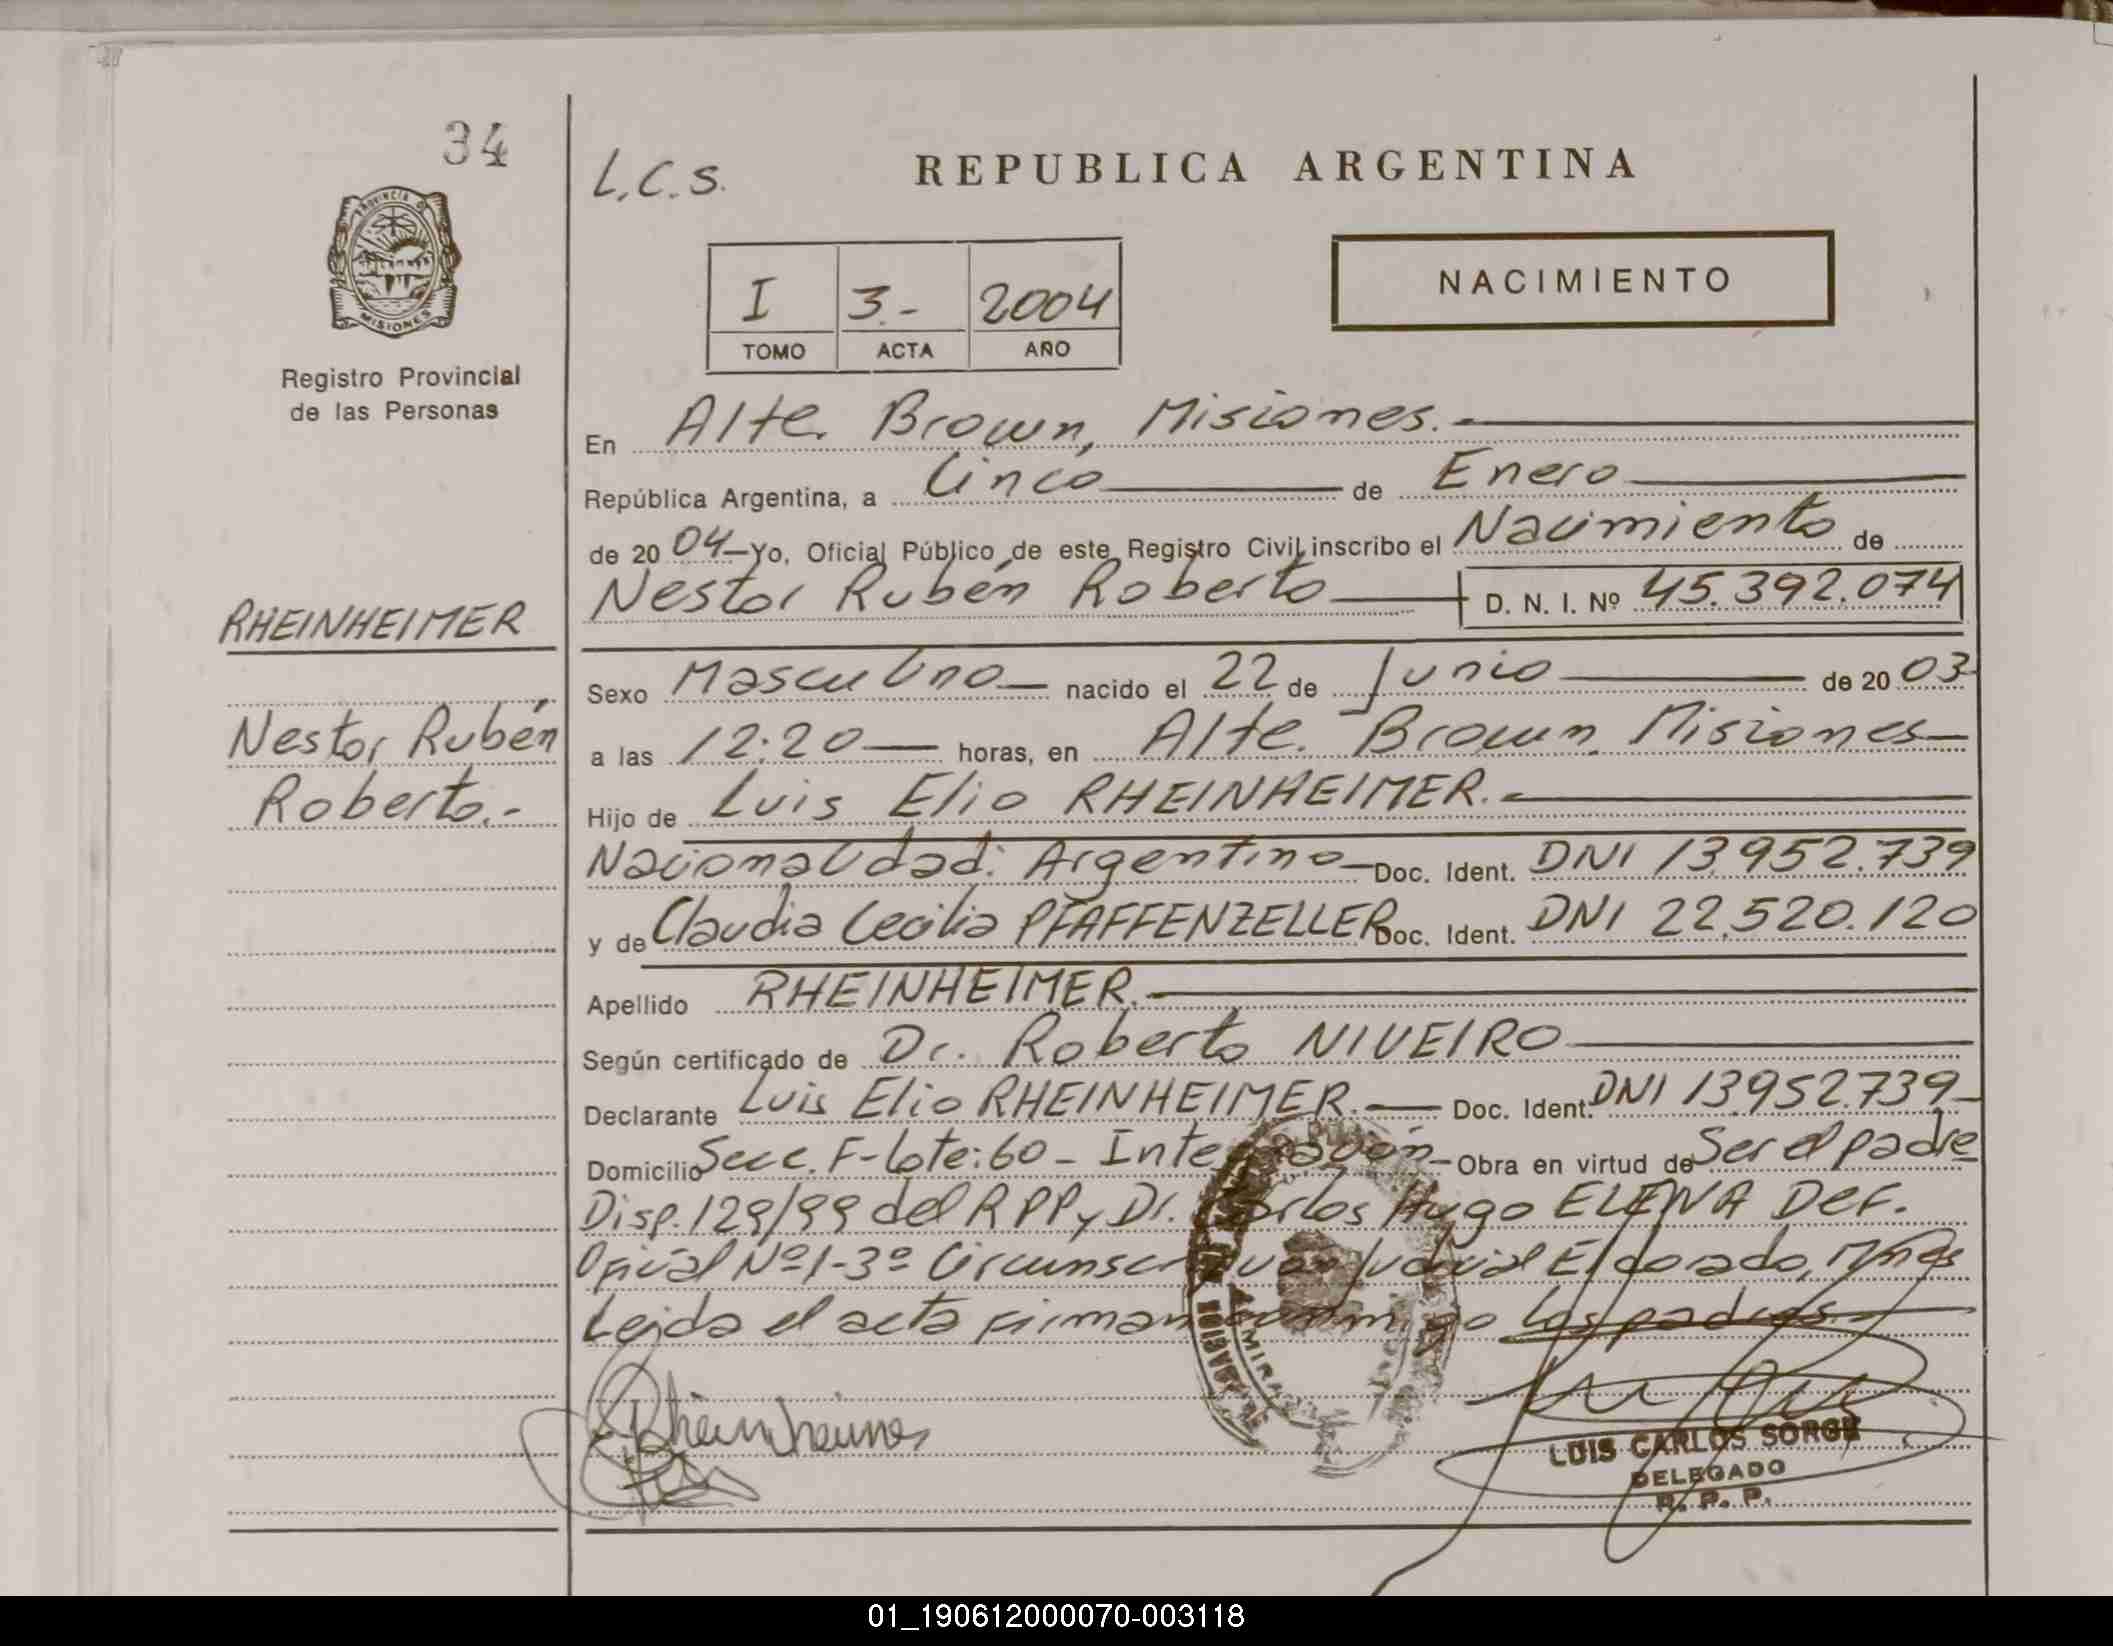 34
PROVINCIA DE
MISIONES
Registro Provincial
de las Personas
RHEINHEIMER
Nestor Rubén
Roberto.-
L.C.S.
REPUBLICA ARGENTINA
I 3.- 2004
TOMO ACTA AÑO
NACIMIENTO
En Alte. Brown, Misiones.
República Argentina, a Cinco de Enero
de 20 04 Yo, Oficial Público de este Registro Civil inscribo el Nacimiento de
Nestor Rubén Roberto D. N. I. Nº 45.392.074
Sexo Masculino nacido el 22 de Junio de 20 03
a las 12:20 horas, en Alte. Brown. Misiones
Hijo de Luis Elio RHEINHEIMER.
Nacionalidad: Argentino Doc. Ident. DNI 13.952.739
y de Claudia Cecilia PFAFFENZELLER Doc. Ident. DNI 22.520.120
Apellido RHEINHEIMER.
Según certificado de Dr. Roberto NIVEIRO
Declarante Luis Elio RHEINHEIMER. Doc. Ident. DNI 13.952.739
Domicilio Secc. F-Lote:60 - Integración Obra en virtud de Ser el padre
Disp. 129/99 del RPP y Dr. Carlos Hugo ELENA Def.
Oficial Nº1-3º Circunscripción Judicial Eldorado, Mnes
Leída el acta firman conmigo los padres
Rheinheimer
LUIS CARLOS SORGE
DELEGADO
R. P. P.
01_190612000070-003118